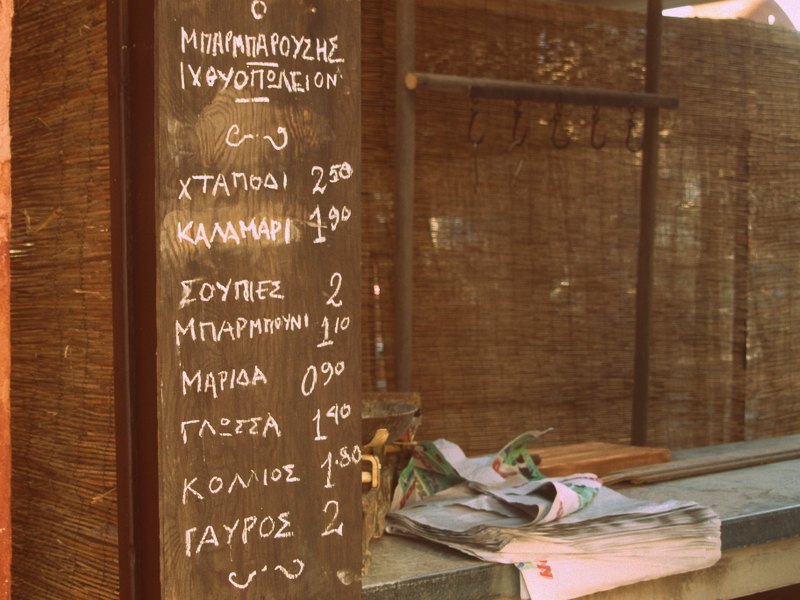 Ο
ΜΠΑΡΜΠΑΡΟΥΣΗΣ
ΙΧΘΥΟΠΩΛΕΙΟΝ
ΧΤΑΠΟΔΙ 2⁵⁰
ΚΑΛΑΜΑΡΙ 1⁹⁰
ΣΟΥΠΙΕΣ 2
ΜΠΑΡΜΠΟΥΝΙ 1¹⁰
ΜΑΡΙΔΑ 0⁹⁰
ΓΛΩΣΣΑ 1⁴⁰
ΚΟΛΛΙΟΣ 1·⁸⁰
ΓΑΥΡΟΣ 2